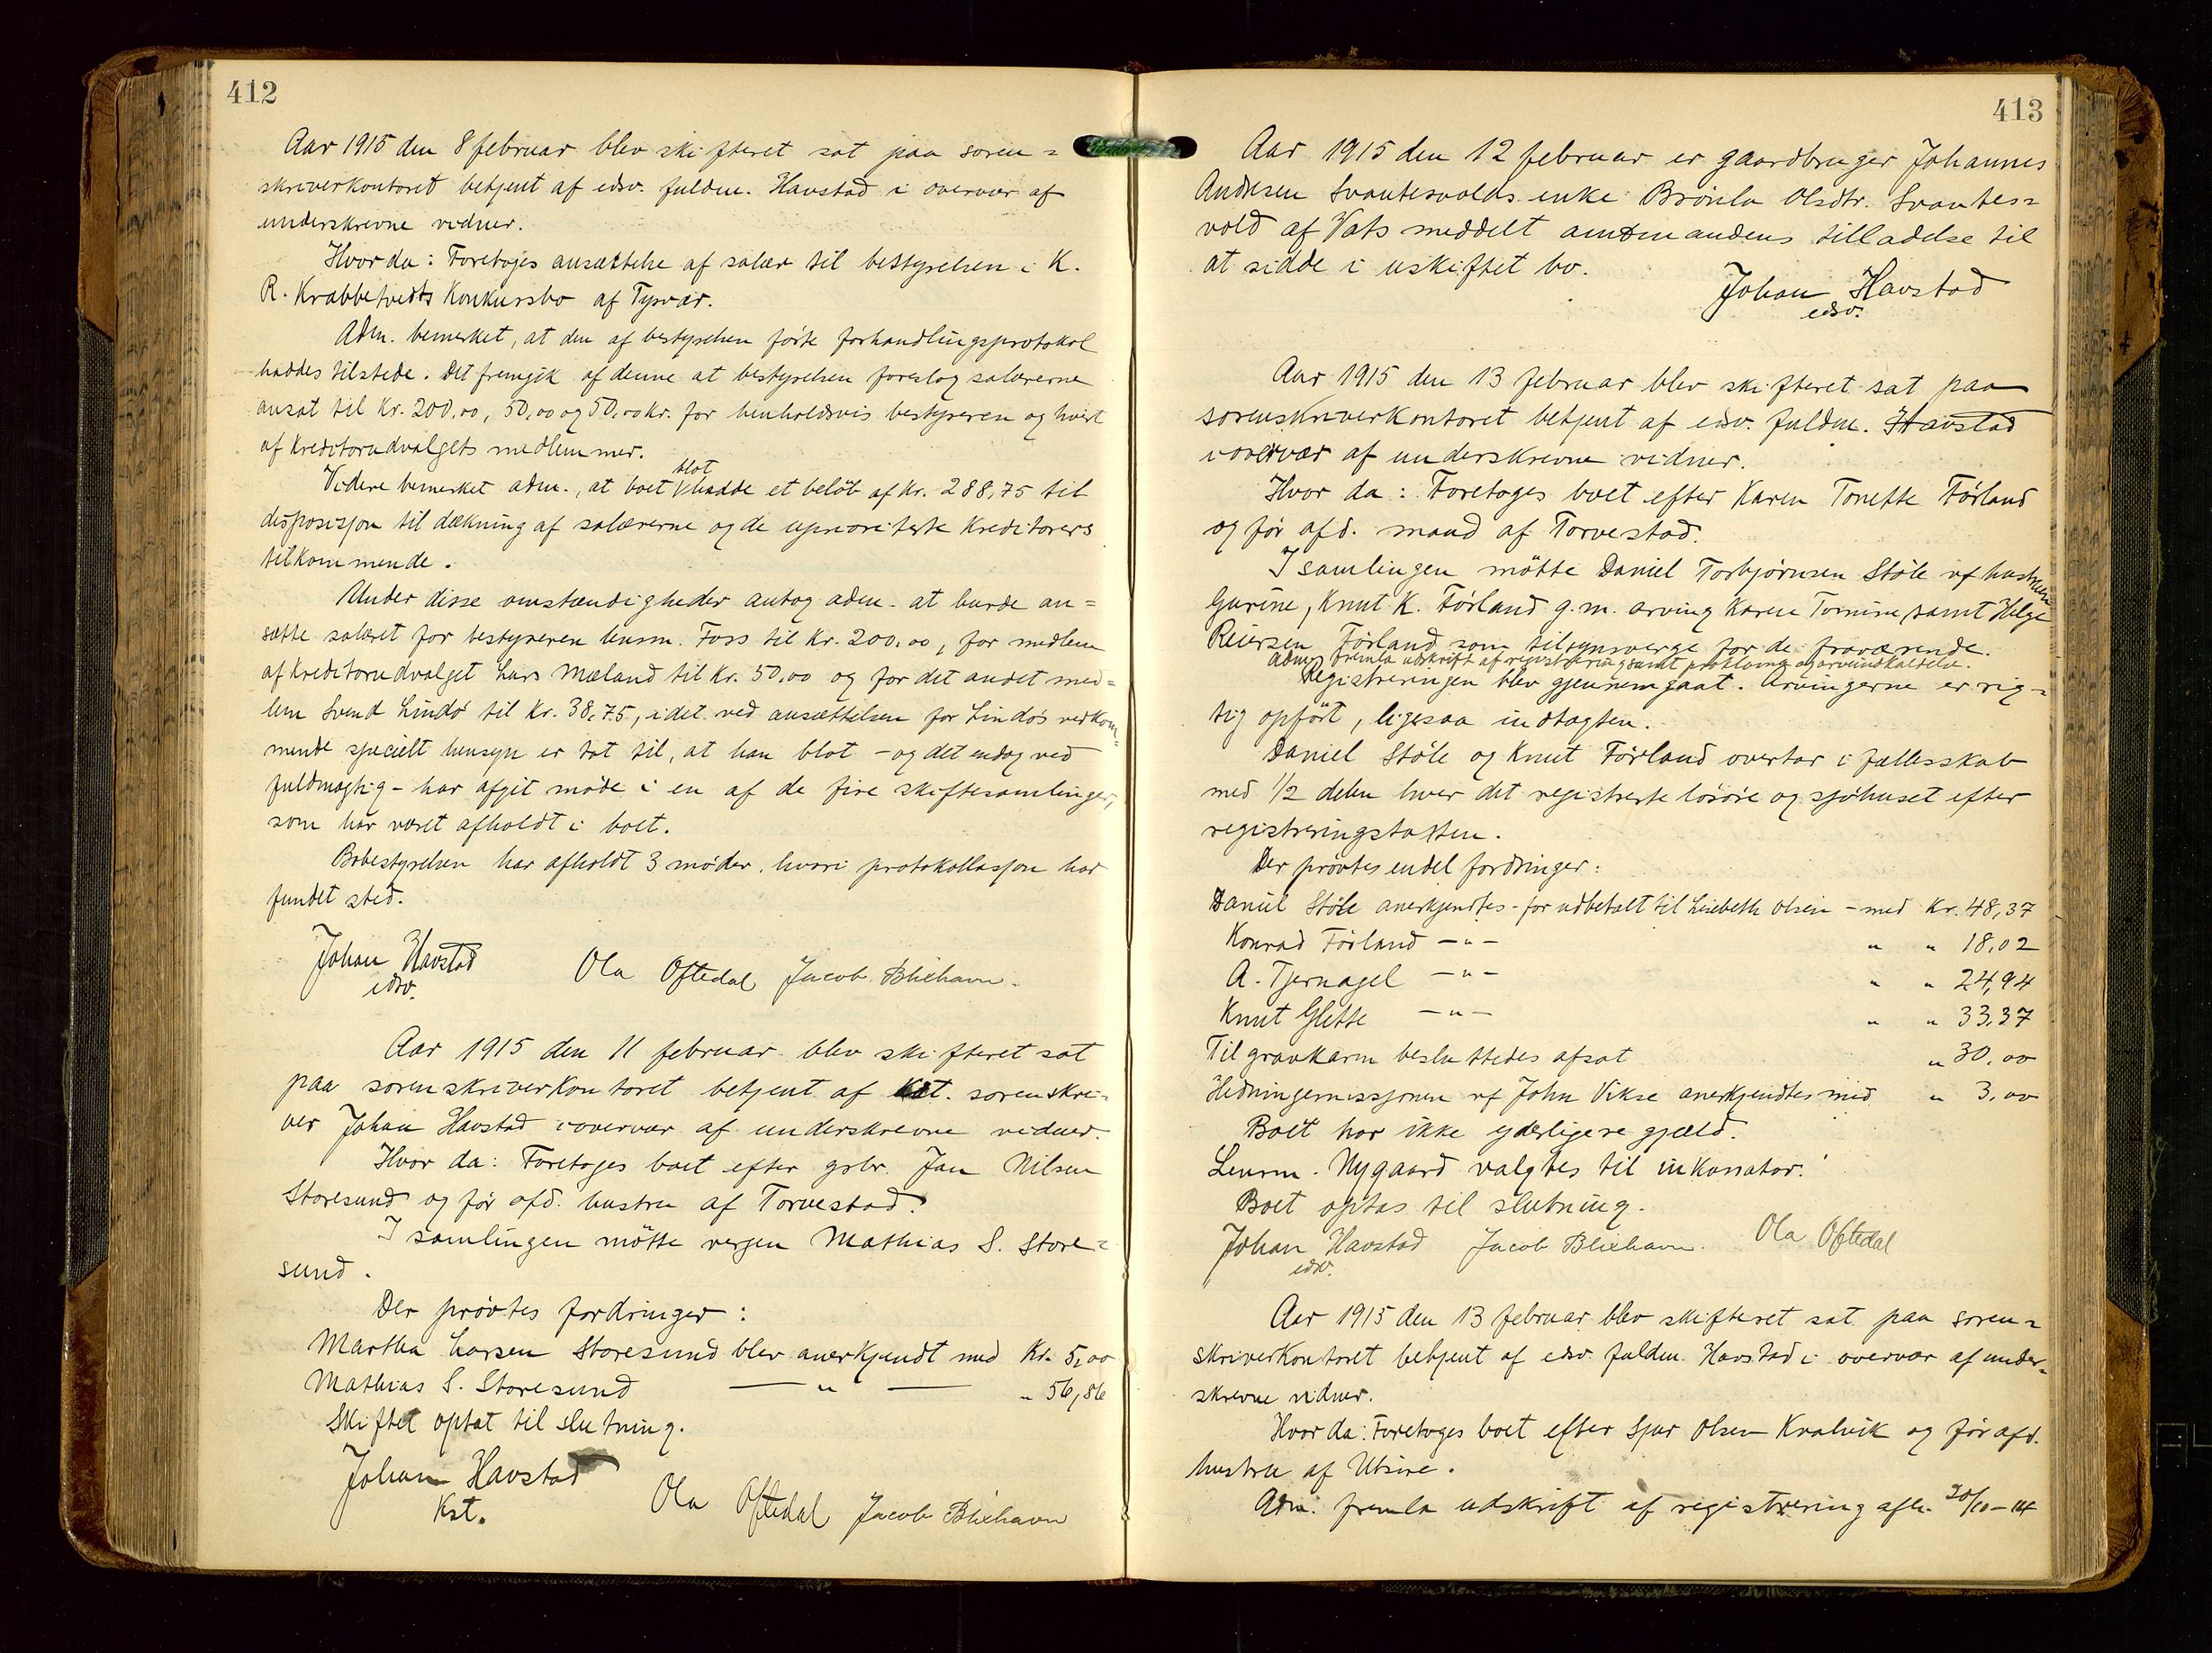 412
Aar 1915 den 8 februar blev skifteret sat paa soren=
skriverkontoret betjent af edsv. fuldm. Havstad i overvær af
underskrevne vidner.
Hvor da: Foretoges ansættelse af salær til bestyrelsen i K.
R. Krabbetveits Konkursbo af Tysvær.
Adm. bemerket, at den af bestyrelsen førte forhandlingsprotokol
haddes tilstede. Det fremgik af denne at bestyrelsen foreslog salærerne
ansat til Kr. 200,00, 50,00 og 50,00 kr. for henholdsvis bestyreren og hvert
af kreditorudvalgets medlemmer.
Videre bemerket adm., at boet blot hadde et beløb af Kr. 288,75 til
disposisjon til dækning af salærerne og de uprioriterte Kreditorers
tilkommende.
Under disse omstændigheder antog adm. at burde an=
sætte salæret for bestyreren lensm. Foss til Kr. 200,00, for medlem
af kreditorudvalget Lars Mæland til Kr. 50,00 og for det andet med=
lem Svend Lindø til Kr. 38,75, idet ved ansættelsen for Lindøs vedkom=
mende specielt hensyn er tat til, at han blot – og det endog ved
fuldmægtig – har afgit møde i en af de fire skiftesamlinger,
som har været afholdt i boet.
Bobestyrelsen har afholdt 3 møder, hvori protokollasjon har
fundet sted.
Johan Havstad
edsv.
Ola Oftedal Jacob Blixhavn.
Aar 1915 den 11 februar blev skifteret sat
paa sorenskriverkontoret betjent af kst. sorenskri=
ver Johan Havstad i overvær af underskrevne vidner.
Hvor da: Foretoges boet efter gsbr. Jan Nilsen
Storesund og før afd. hustru af Torvestad.
I samlingen møtte vergen Mathias S. Store=
sund.
Der prøvtes fordringer:
Martha Larsen Storesund blev anerkjendt med Kr. 5,00
Mathias S. Storesund — " — " 56,86
Skiftet optat til slutning.
Johan Havstad
Kst.
Ola Oftedal Jacob Blixhavn
413
Aar 1915 den 12 februar er gaardbruger Johannes
Andresen Svantesvolds enke Brønla Olsdtr. Svantes=
vold af Vats meddelt amtmandens tilladelse til
at sidde i uskiftet bo.
Johan Havstad
edsv.
Aar 1915 den 13 februar blev skifteret sat paa
sorenskriverkontoret betjent af edsv. fuldm. Havstad
i overvær af underskrevne vidner.
Hvor da: Foretoges boet efter Karen Tonette Førland
og før afd. mand af Torvestad.
I samlingen møtte Daniel Torbjørnsen Støle vf hustruen
Gurine, Knut K. Førland g.m. arving Karen Tomine, samt Helge
Reiersen Førland som tilsynsverge for de fraværende.
Adm. fremla udskrift af registrering samt proklama og arveindkaldelse.
Registreringen blev gjennemgaat. Arvingerne er rig=
tig opført, ligesaa indtægten.
Daniel Støle og Knut Førland overtar i fællesskab
med 1/2 delen hver det registrerte løsøre og sjøhuset efter
registreringstaksten.
Der prøvtes endel fordringer:
Daniel Støle anerkjendtes – for udbetalt til Lisebeth Olsen – med Kr. 48,37
Konrad Førland – " – " " 18,02
A. Tjernagel – " – " " 24,94
Knut Glette – " – " " 33,37
Til gravkarm besluttedes afsat " 30,00
Hedningemissjonen vf John Vikse anerkjendtes med " 3,00
Boet har ikke yderligere gjæld.
Lensm. Nygaard valgtes til inkassator.
Boet optas til slutning.
Johan Havstad Jacob Blixhavn. Ola Oftedal
edsv.
Aar 1915 den 13 februar blev skifteret sat paa soren=
skriverkontoret betjent af edsv. fuldm. Havstad i overvær af under=
skrevne vidner.
Hvor da: Foretoges boet efter Sjur Olsen Kvalvik og før afd.
hustru af Utsire.
Adm. fremla udskrift af registrering afh. 20/10–14